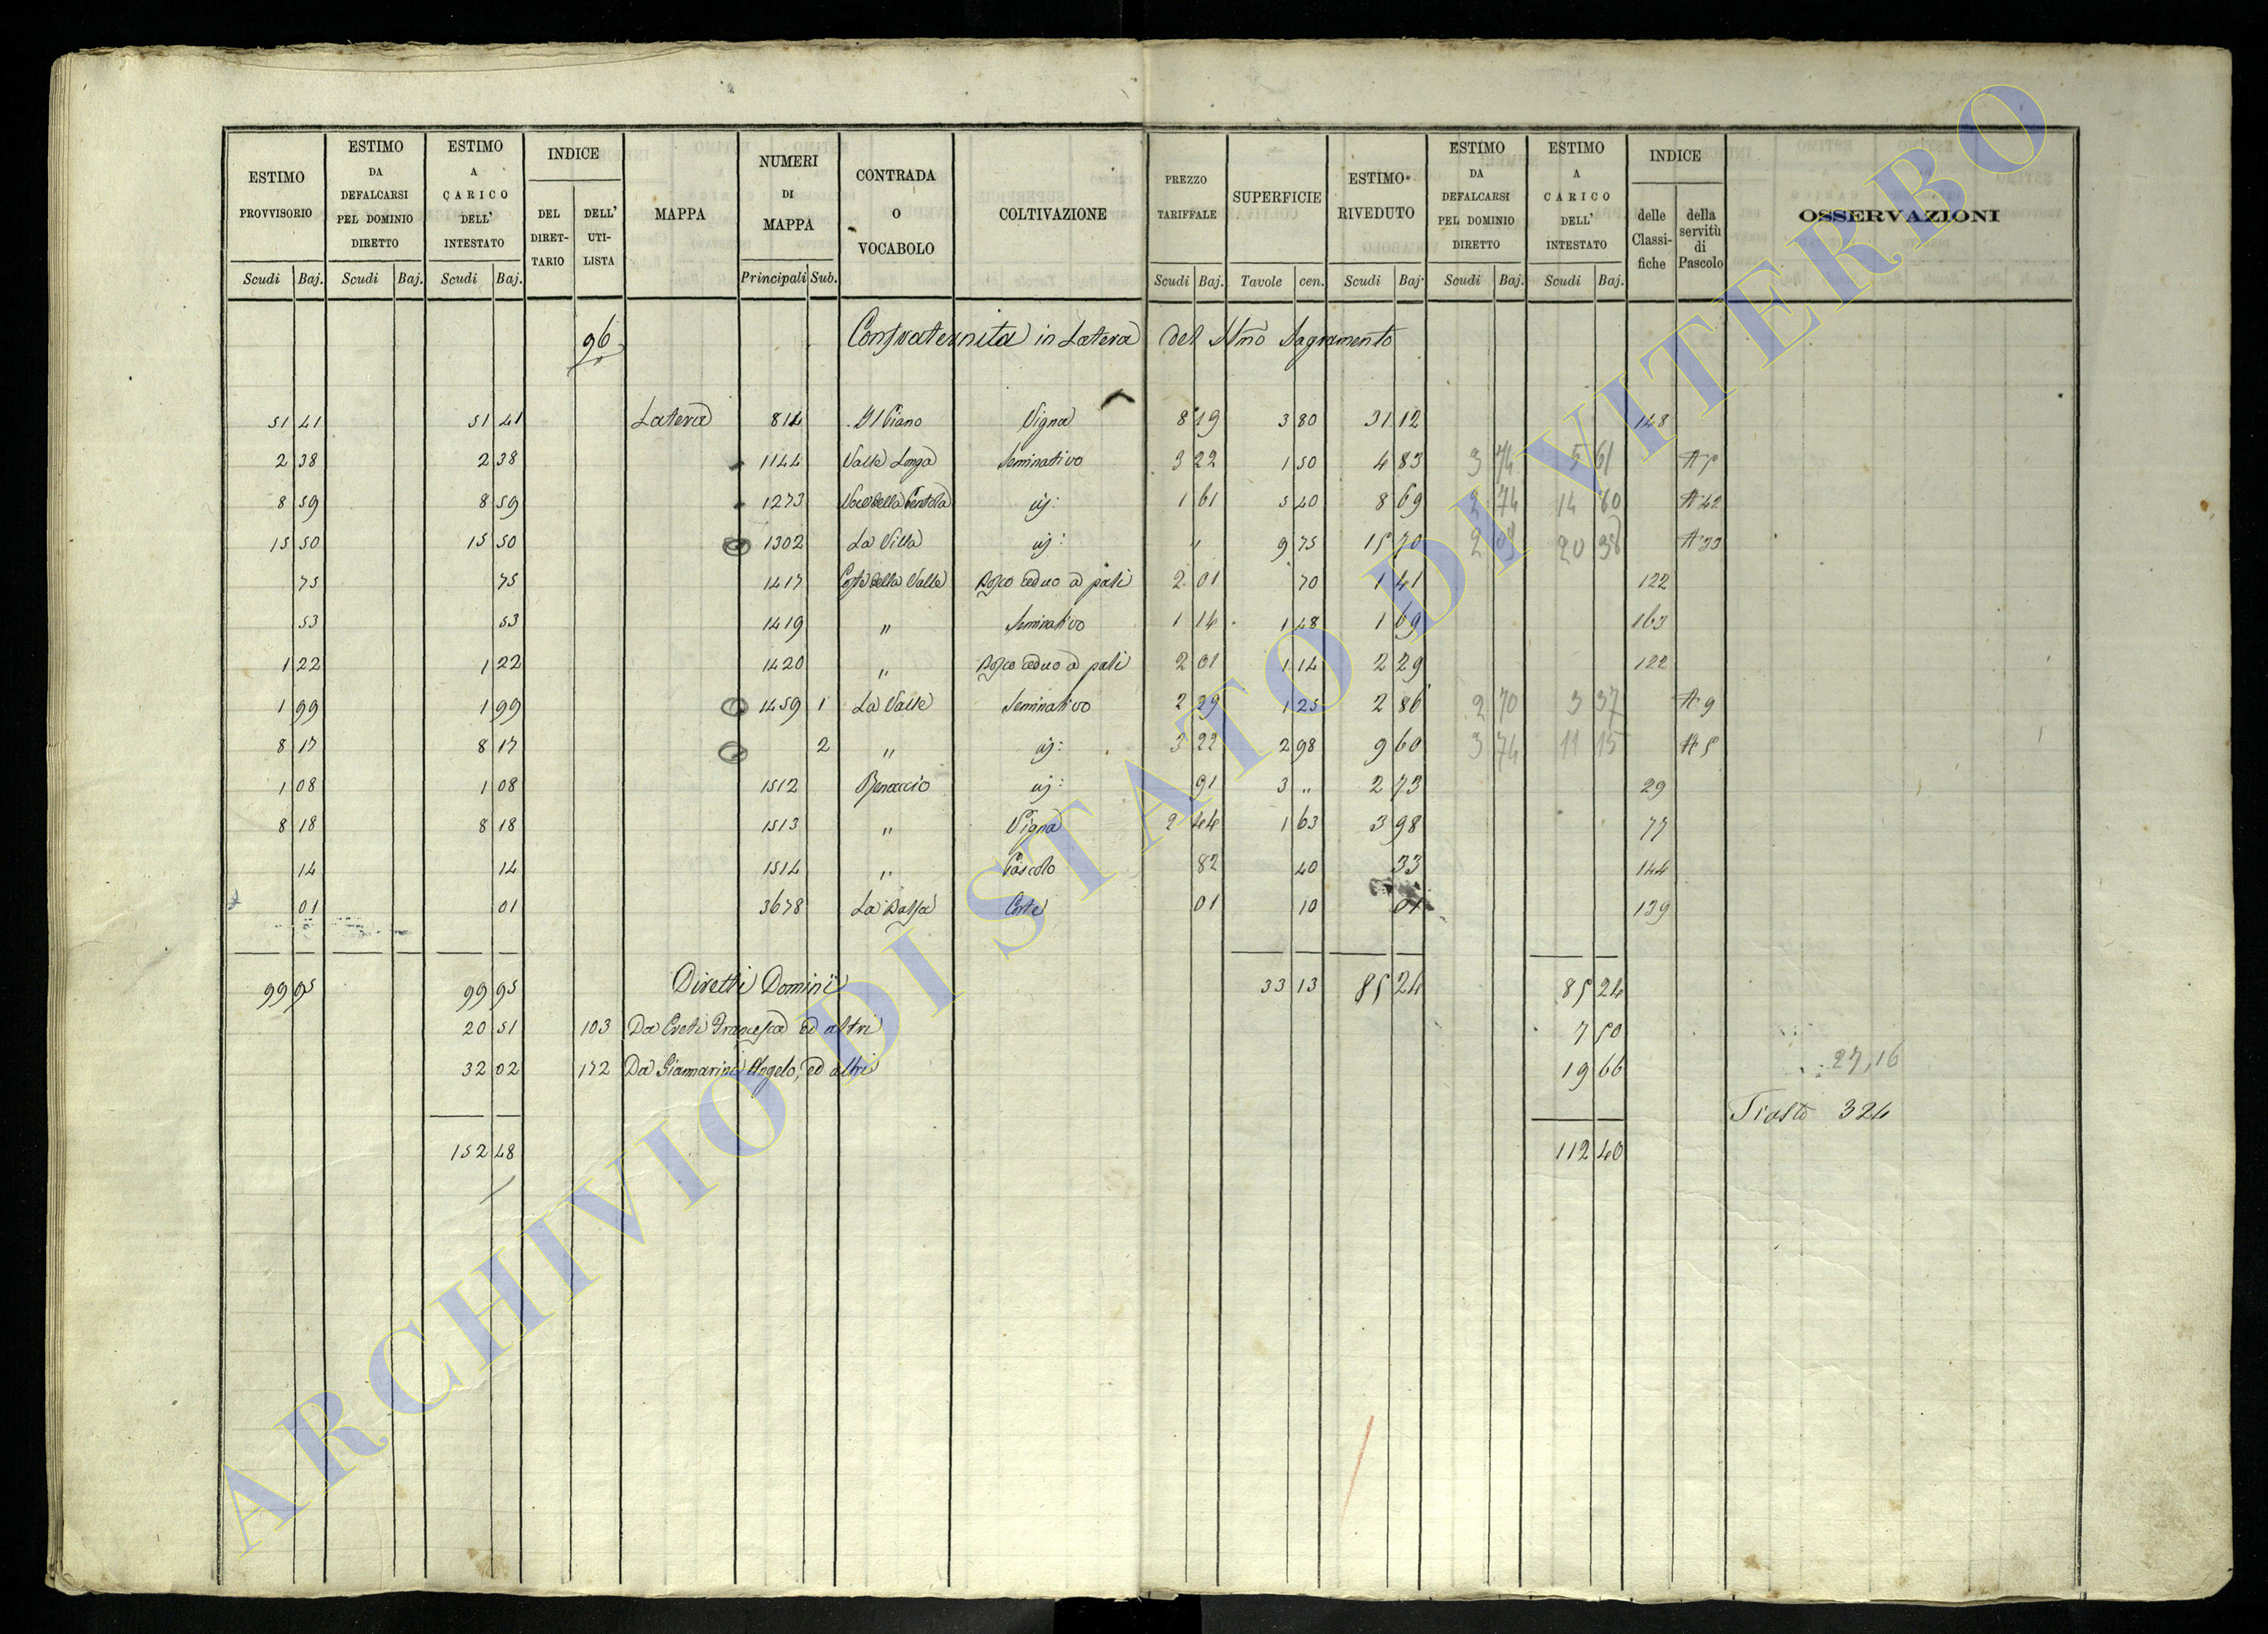 ESTIMO PROVVISORIO Scudi Baj.
ESTIMO DA DEFALCARSI PEL DOMINIO DIRETTO Scudi Baj.
ESTIMO A CARICO DELL' INTESTATO Scudi Baj.
INDICE DEL DIRET-TARIO DELL' UTI-LISTA
MAPPA
NUMERI DI MAPPA Principali Sub.
CONTRADA O VOCABOLO
COLTIVAZIONE
PREZZO TARIFFALE Scudi Baj.
SUPERFICIE Tavole cen.
ESTIMO RIVEDUTO Scudi Baj.
ESTIMO DA DEFALCARSI PEL DOMINIO DIRETTO Scudi Baj.
ESTIMO A CARICO DELL' INTESTATO Scudi Baj.
INDICE delle Classi-fiche della servitù di Pascolo
OSSERVAZIONI
96 Confraternita in Latera del SSmo Sagramento
51 41 51 41 Latera 814 Il Piano Vigna 8 19 3 80 31 12 148
2 38 2 38 1144 Valle Longa Seminativo 3 22 1 50 4 83 3 74 5 61 A 5
8 59 8 59 1273 1 61 5 40 8 69 2 74 14 80 A 42
15 50 15 50 1302 La Villa " 9 75 15 70 2 09 20 38 A 33
75 75 1417 Coste della Valle Bosco ceduo a pali 2 01 70 1 41 122
53 53 1419 " Seminativo 1 14 1 48 1 69 163
1 22 1 22 1420 " Bosco ceduo a pali 2 01 1 14 2 29 122
1 99 1 99 1459 1 La Valle Seminativo 2 29 1 25 2 86 2 70 3 37 A 9
8 17 8 17 2 " 3 22 2 98 9 60 3 74 11 15 A 5
1 08 1 08 1512 91 3 " 2 73 29
8 18 8 18 1513 " Vigna 2 44 1 63 3 98 77
14 14 1514 " Pascolo 82 40 33 144
01 01 3678 Corte 01 10 01 139
99 95 99 95 Diretti Dominii 33 13 85 24 85 24
20 51 103 Da Creti Francesca ed altri 7 50
32 02 172 Da Giamarini Angelo, ed altri 19 66 27,16
324
152 48 112 40
ARCHIVIO DI STATO DI VITERBO